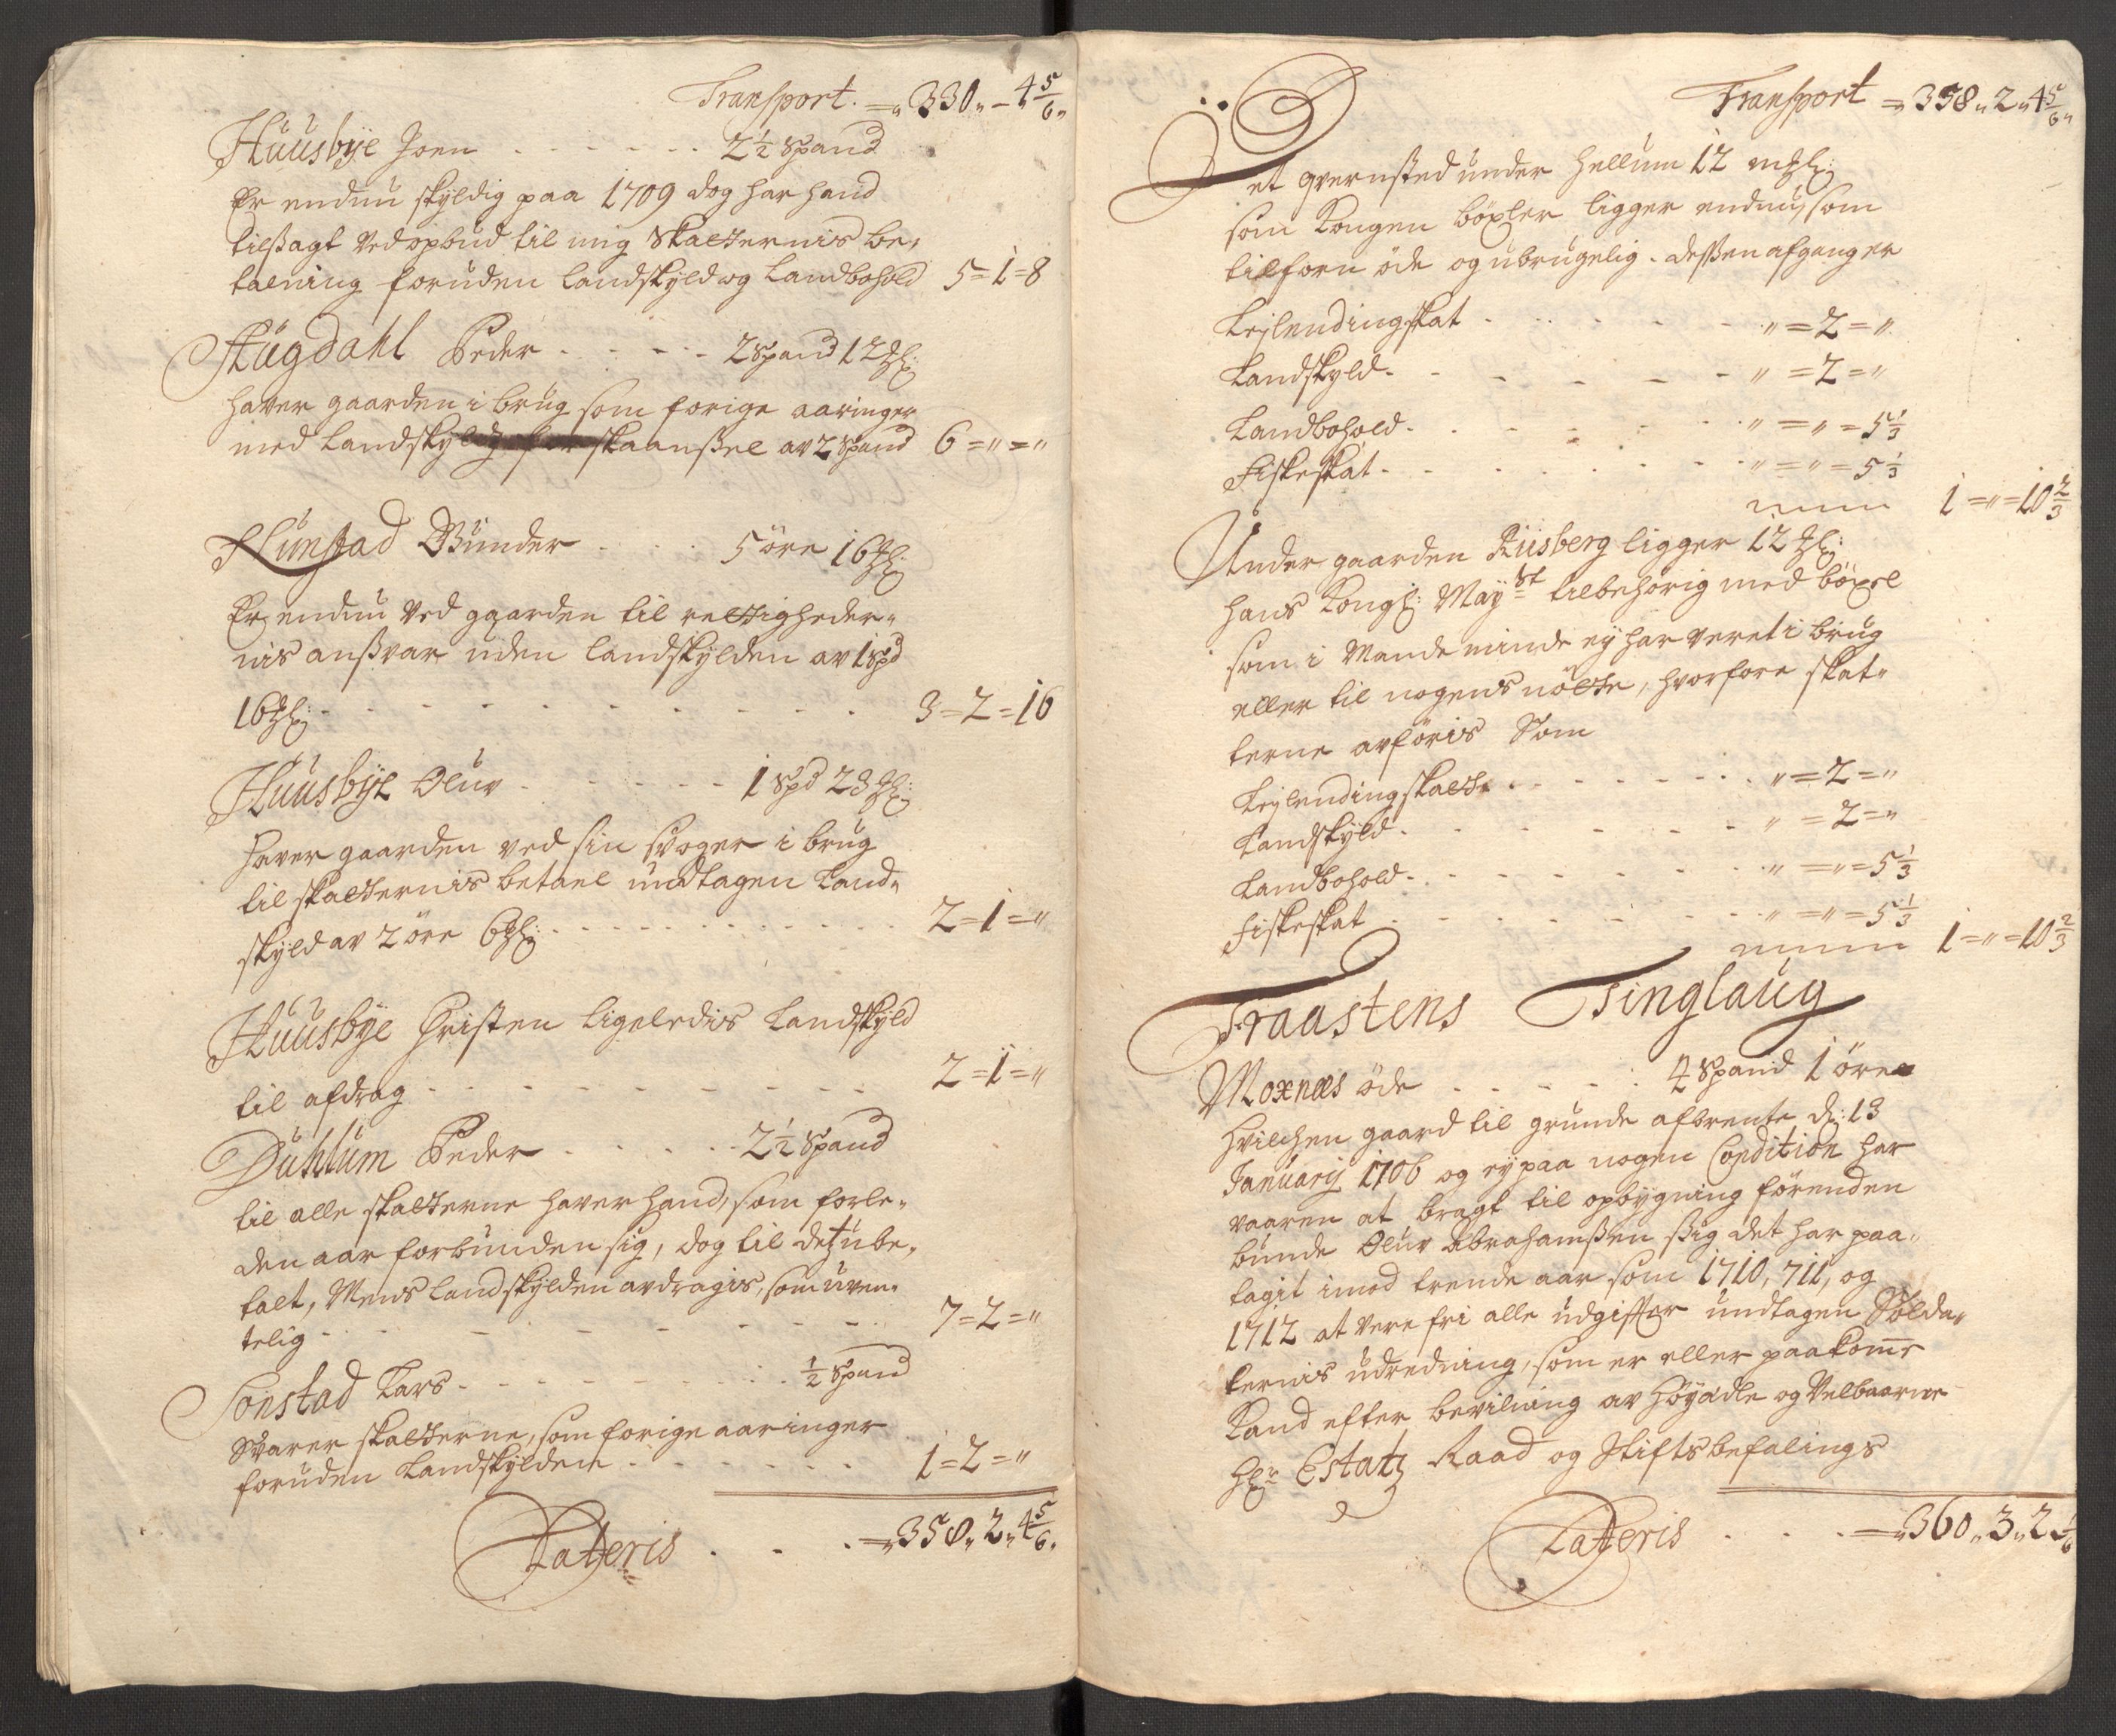 Transport. = „ 330 „ – 4 5/6 „
Huusbye Joen . . . . . . 2 1/2 Spand
Er endnu skyldig paa 1709 dog har hand
tilsagt ved opbud til mig Skatternis be„
talning foruden landskyld og Landbohold 5 = 1 = 8
Hugdahl Peder . . . . . 2 Spand 12 ℳ:
haver gaarden i brug som forige aaringer
med Landskyld skaanssel av 2 Spand 6 = „ = „
Flunstad Gunder . . . 5 öre 16 ℳ
Er endnu ved gaarden til rettigheder„
nis ansvar uden landskylden av 1 Spd
16 ℳ: . . . . . . . . . . . 3 = 2 = 16
Huusbye Oluv . . . . . . 1 Spd 23 ℳ:
haver gaarden ved sin svoger i brug
til skatternis betael undtagen Land„
skyld av 2 öre 6 ℳ: . . . . . . . . . . . 2 = 1 = „
Huusbye Christen ligeledis Landskyld
til afdrag . . . . . . . . . . 2 = 1 = „
Duhlum Peder . . . . . 2 1/2 Spand
til alle skatterne haver hand, som forle„
den aar forbunden sig, dog til detz ube„
talt, Mens landskylden avdragis, som uven„
telig . . . . . . . . . 7 = 2 = „
Sonstad Lars . . . . . . . . . 1/2 Spand
Svarer skatterne, som forige aaringer
foruden Landskylden . . . . . . . 1 = 2 = „
Latteris . . . = „ 358 „ 2 „ 4 5/6 „
Transport = 358 „ 2 „ 4 5/6 „
Et qvernsted under Hellum 12 mℳ:
som Kongen böxler ligger endnu, som
tilforn öde og ubrugelig. dessen afgang er
Leylendingskat . . . . . . . „ = 2 = „
Landskyld . . . . . . . „ = 2 = „
Landbohold . . . . . . . „ = „ = 5 1/3
Fiskeskat . . . . . . . „ = „ = 5 1/3
1 = „ = 10 2/3
Under gaarden Riisberg ligger 12 ℳ:
hans Kongl: Mayst tilbehörig med böxel
som i Mands minde ey har veret i brug
eller til nogens nötte, hvorfore skat„
terne avföris Som
Leylendingskatte . . . . . . . „ = 2 = „
Landskyld . . . . . . . „ = 2 = „
Landbohold . . . . . . . „ = „ = 5 1/3
Fiskeskat . . . . . . . „ = „ = 5 1/3
1 = „ = 10 2/3
Fraastens Tinglaug
Moxnæs öde . . . . . 4 Spand 1 öre
hvilchen gaard til grunde afbrente d: 13
January 1706 og ey paa nogen Condition har
vaaren at bragt til opbygning förenden
bunde Oluv Abrahamssen ssig det har paa„
tagit imod trende aar som 1710, 711, og
1712 at vere fri alle udgifter undtagen Solda„
ternis udredning, som er eller paakome
Kand efter bevilning av Höyædle og Velbaarne
Hr Estatz Raad og Stiftsbefalings
Latteris . . . = „ 360 „ 3 „ 2 1/6